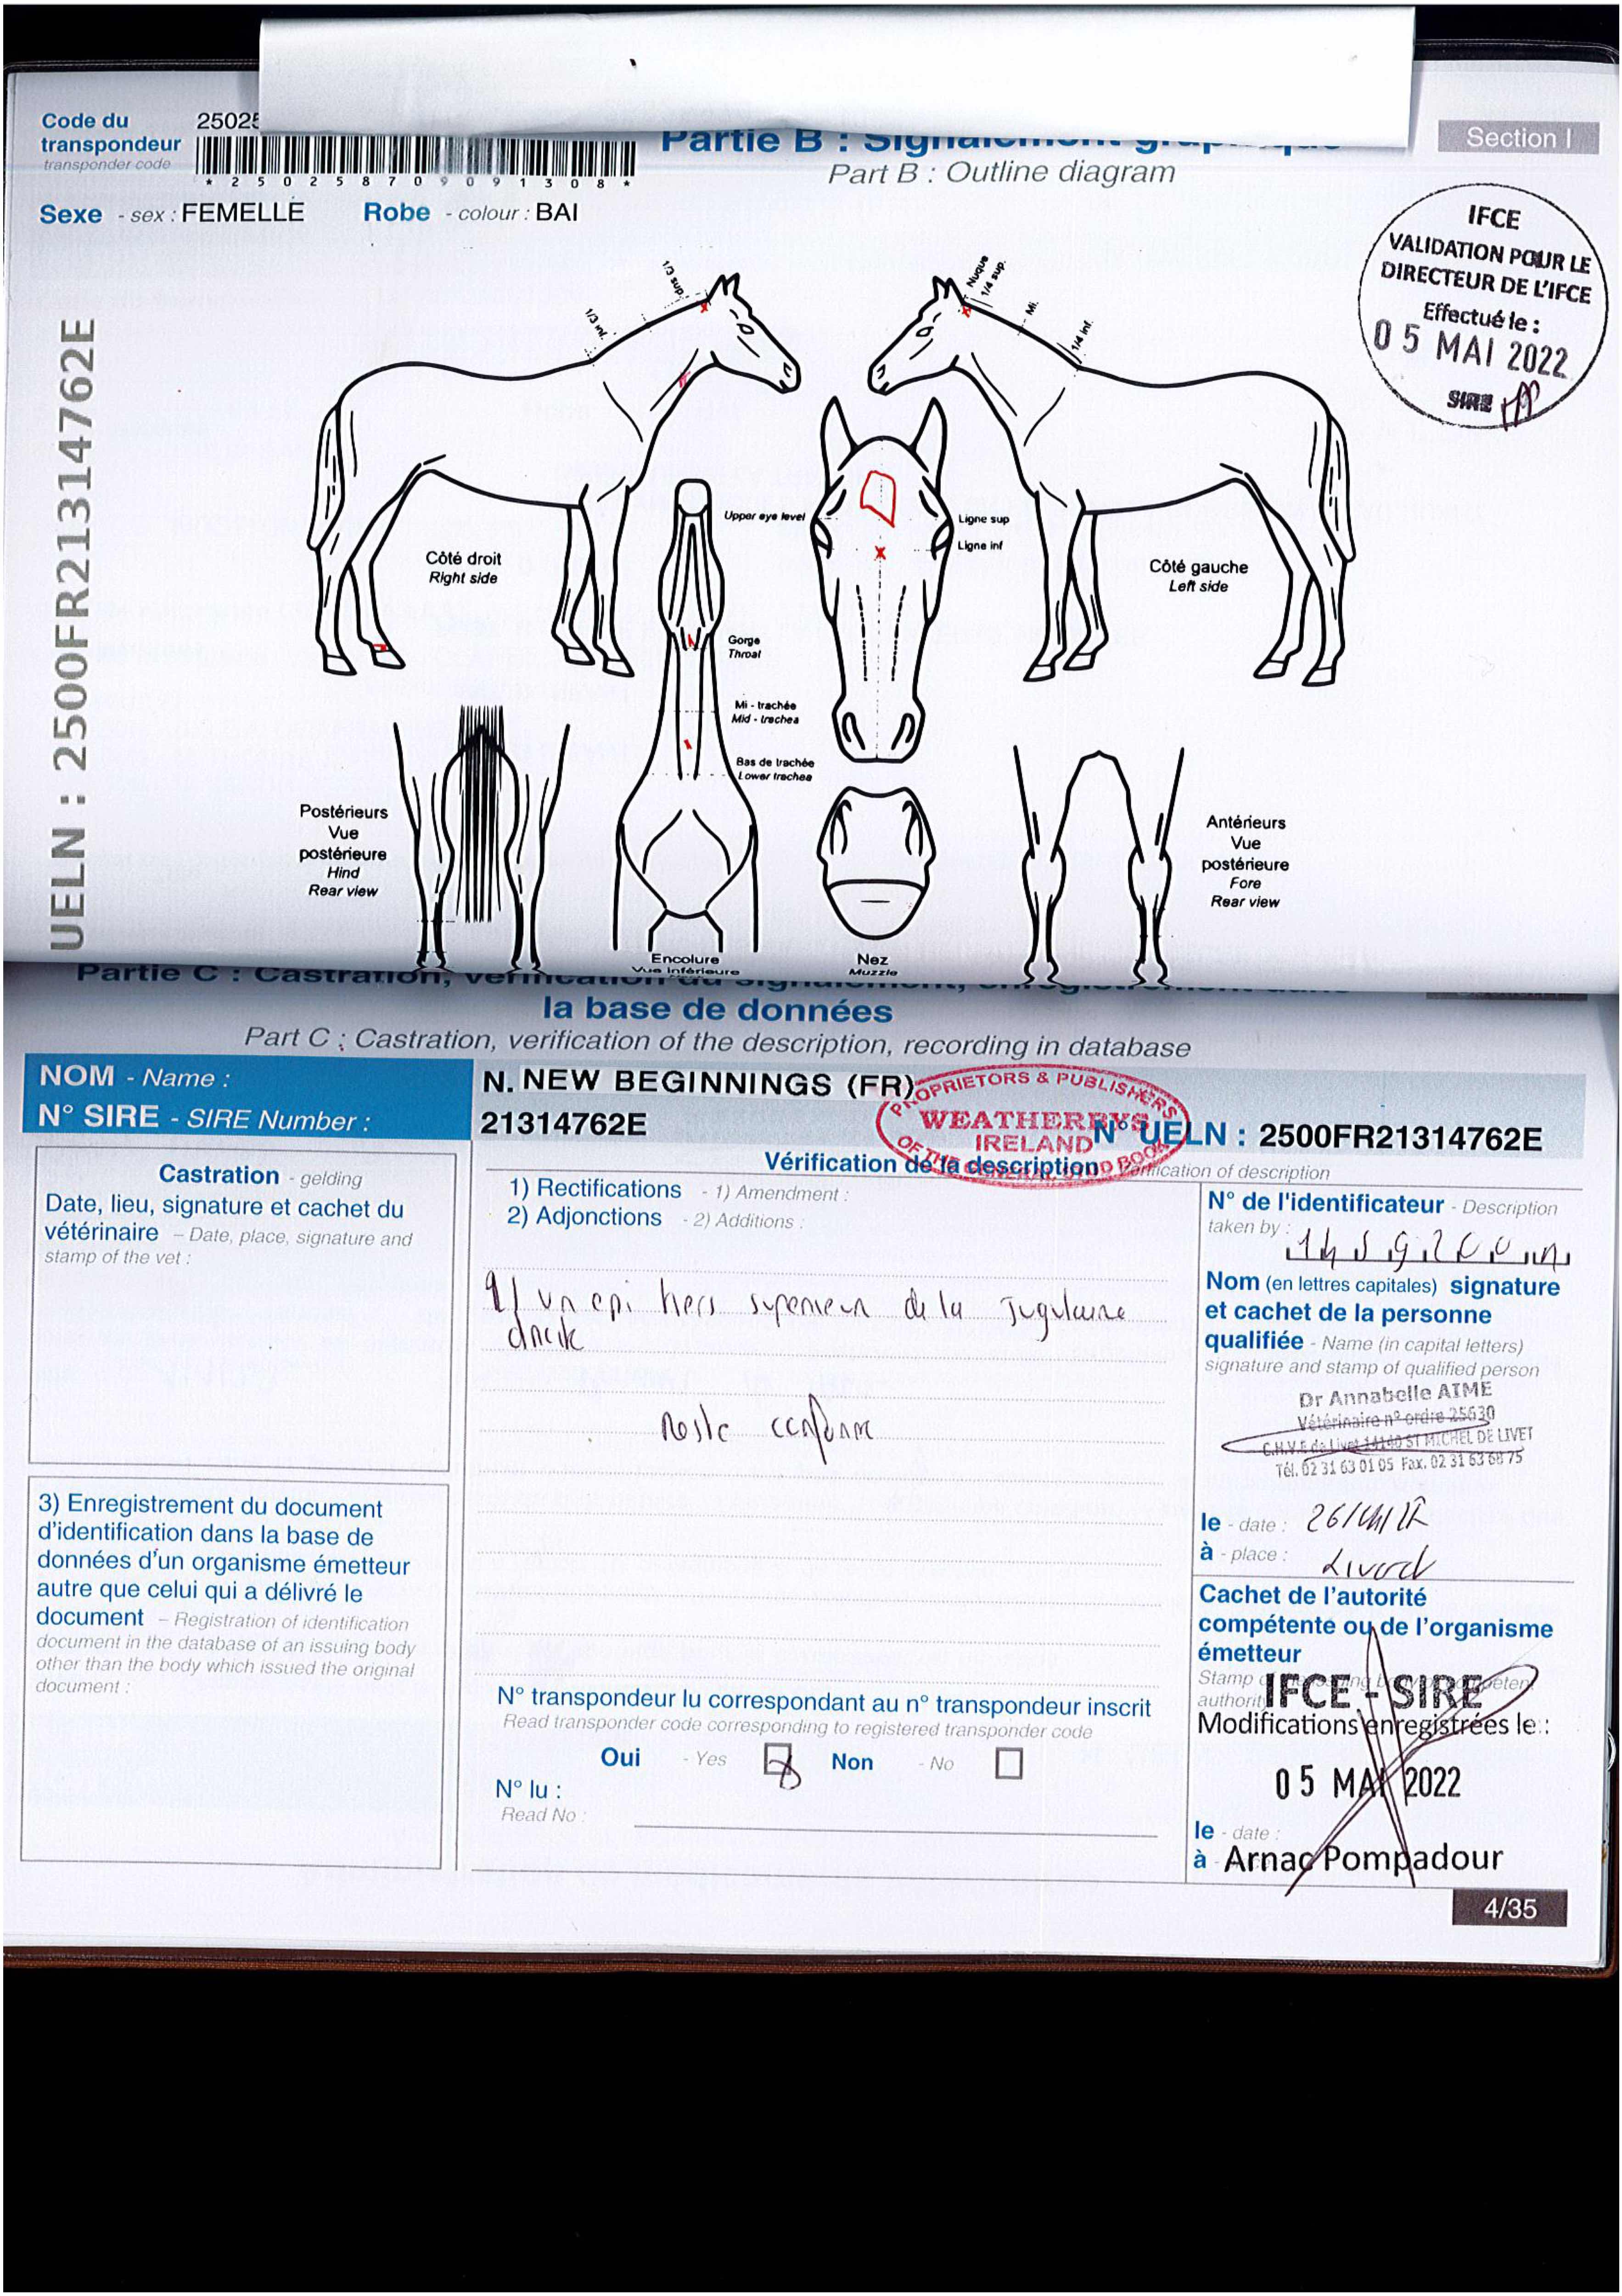 Code du
transpondeur
transponder code
25025
* 2 5 0 2 5 8 7 0 9 0 9 1 3 0 8 *
Partie B : Signalement graphique
Part B : Outline diagram
Section I
Sexe - sex : FEMELLE Robe - colour : BAI
IFCE
VALIDATION POUR LE
DIRECTEUR DE L'IFCE
Effectué le :
0 5 MAI 2022
SIRE
UELN : 2500FR21314762E
1/3 sup.
1/3 inf.
Nuque
1/4 sup.
Mi.
1/4 inf.
Côté droit
Right side
Upper eye level
Ligne sup
Ligne inf
Côté gauche
Left side
Gorge
Throat
Mi - trachée
Mid - trachea
Bas de trachée
Lower trachea
Postérieurs
Vue
postérieure
Hind
Rear view
Antérieurs
Vue
postérieure
Fore
Rear view
Encolure
Vue inférieure
Nez
Muzzle
Partie C : Castration, vérification du signalement, enregistrement dans
la base de données
Part C : Castration, verification of the description, recording in database
NOM - Name :
N. NEW BEGINNINGS (FR)
N° SIRE - SIRE Number :
21314762E
N° UELN : 2500FR21314762E
PROPRIETORS & PUBLISHERS
WEATHERBYS
IRELAND
OF THE GENERAL STUD BOOK
Castration - gelding
Date, lieu, signature et cachet du
vétérinaire – Date, place, signature and
stamp of the vet :
Vérification de la description - Verification of description
1) Rectifications - 1) Amendment :
2) Adjonctions - 2) Additions :
un epi tiers superieur de la jugulaire
droite
Reste conforme
N° de l'identificateur - Description
taken by :
Nom (en lettres capitales) signature
et cachet de la personne
qualifiée - Name (in capital letters)
signature and stamp of qualified person
Dr Annabelle AIME
Vétérinaire n° ordre 25630
C.H.V.E de Livet 14140 ST MICHEL DE LIVET
Tél. 02 31 63 01 05 Fax. 02 31 63 68 75
le - date :
à - place :
3) Enregistrement du document
d'identification dans la base de
données d'un organisme émetteur
autre que celui qui a délivré le
document – Registration of identification
document in the database of an issuing body
other than the body which issued the original
document :
Cachet de l'autorité
compétente ou de l'organisme
émetteur
IFCE - SIRE
Modifications enregistrées le :
0 5 MAI 2022
le - date :
à Arnac Pompadour
N° transpondeur lu correspondant au n° transpondeur inscrit
Read transponder code corresponding to registered transponder code
Oui - Yes Non - No
N° lu :
Read No :
4/35